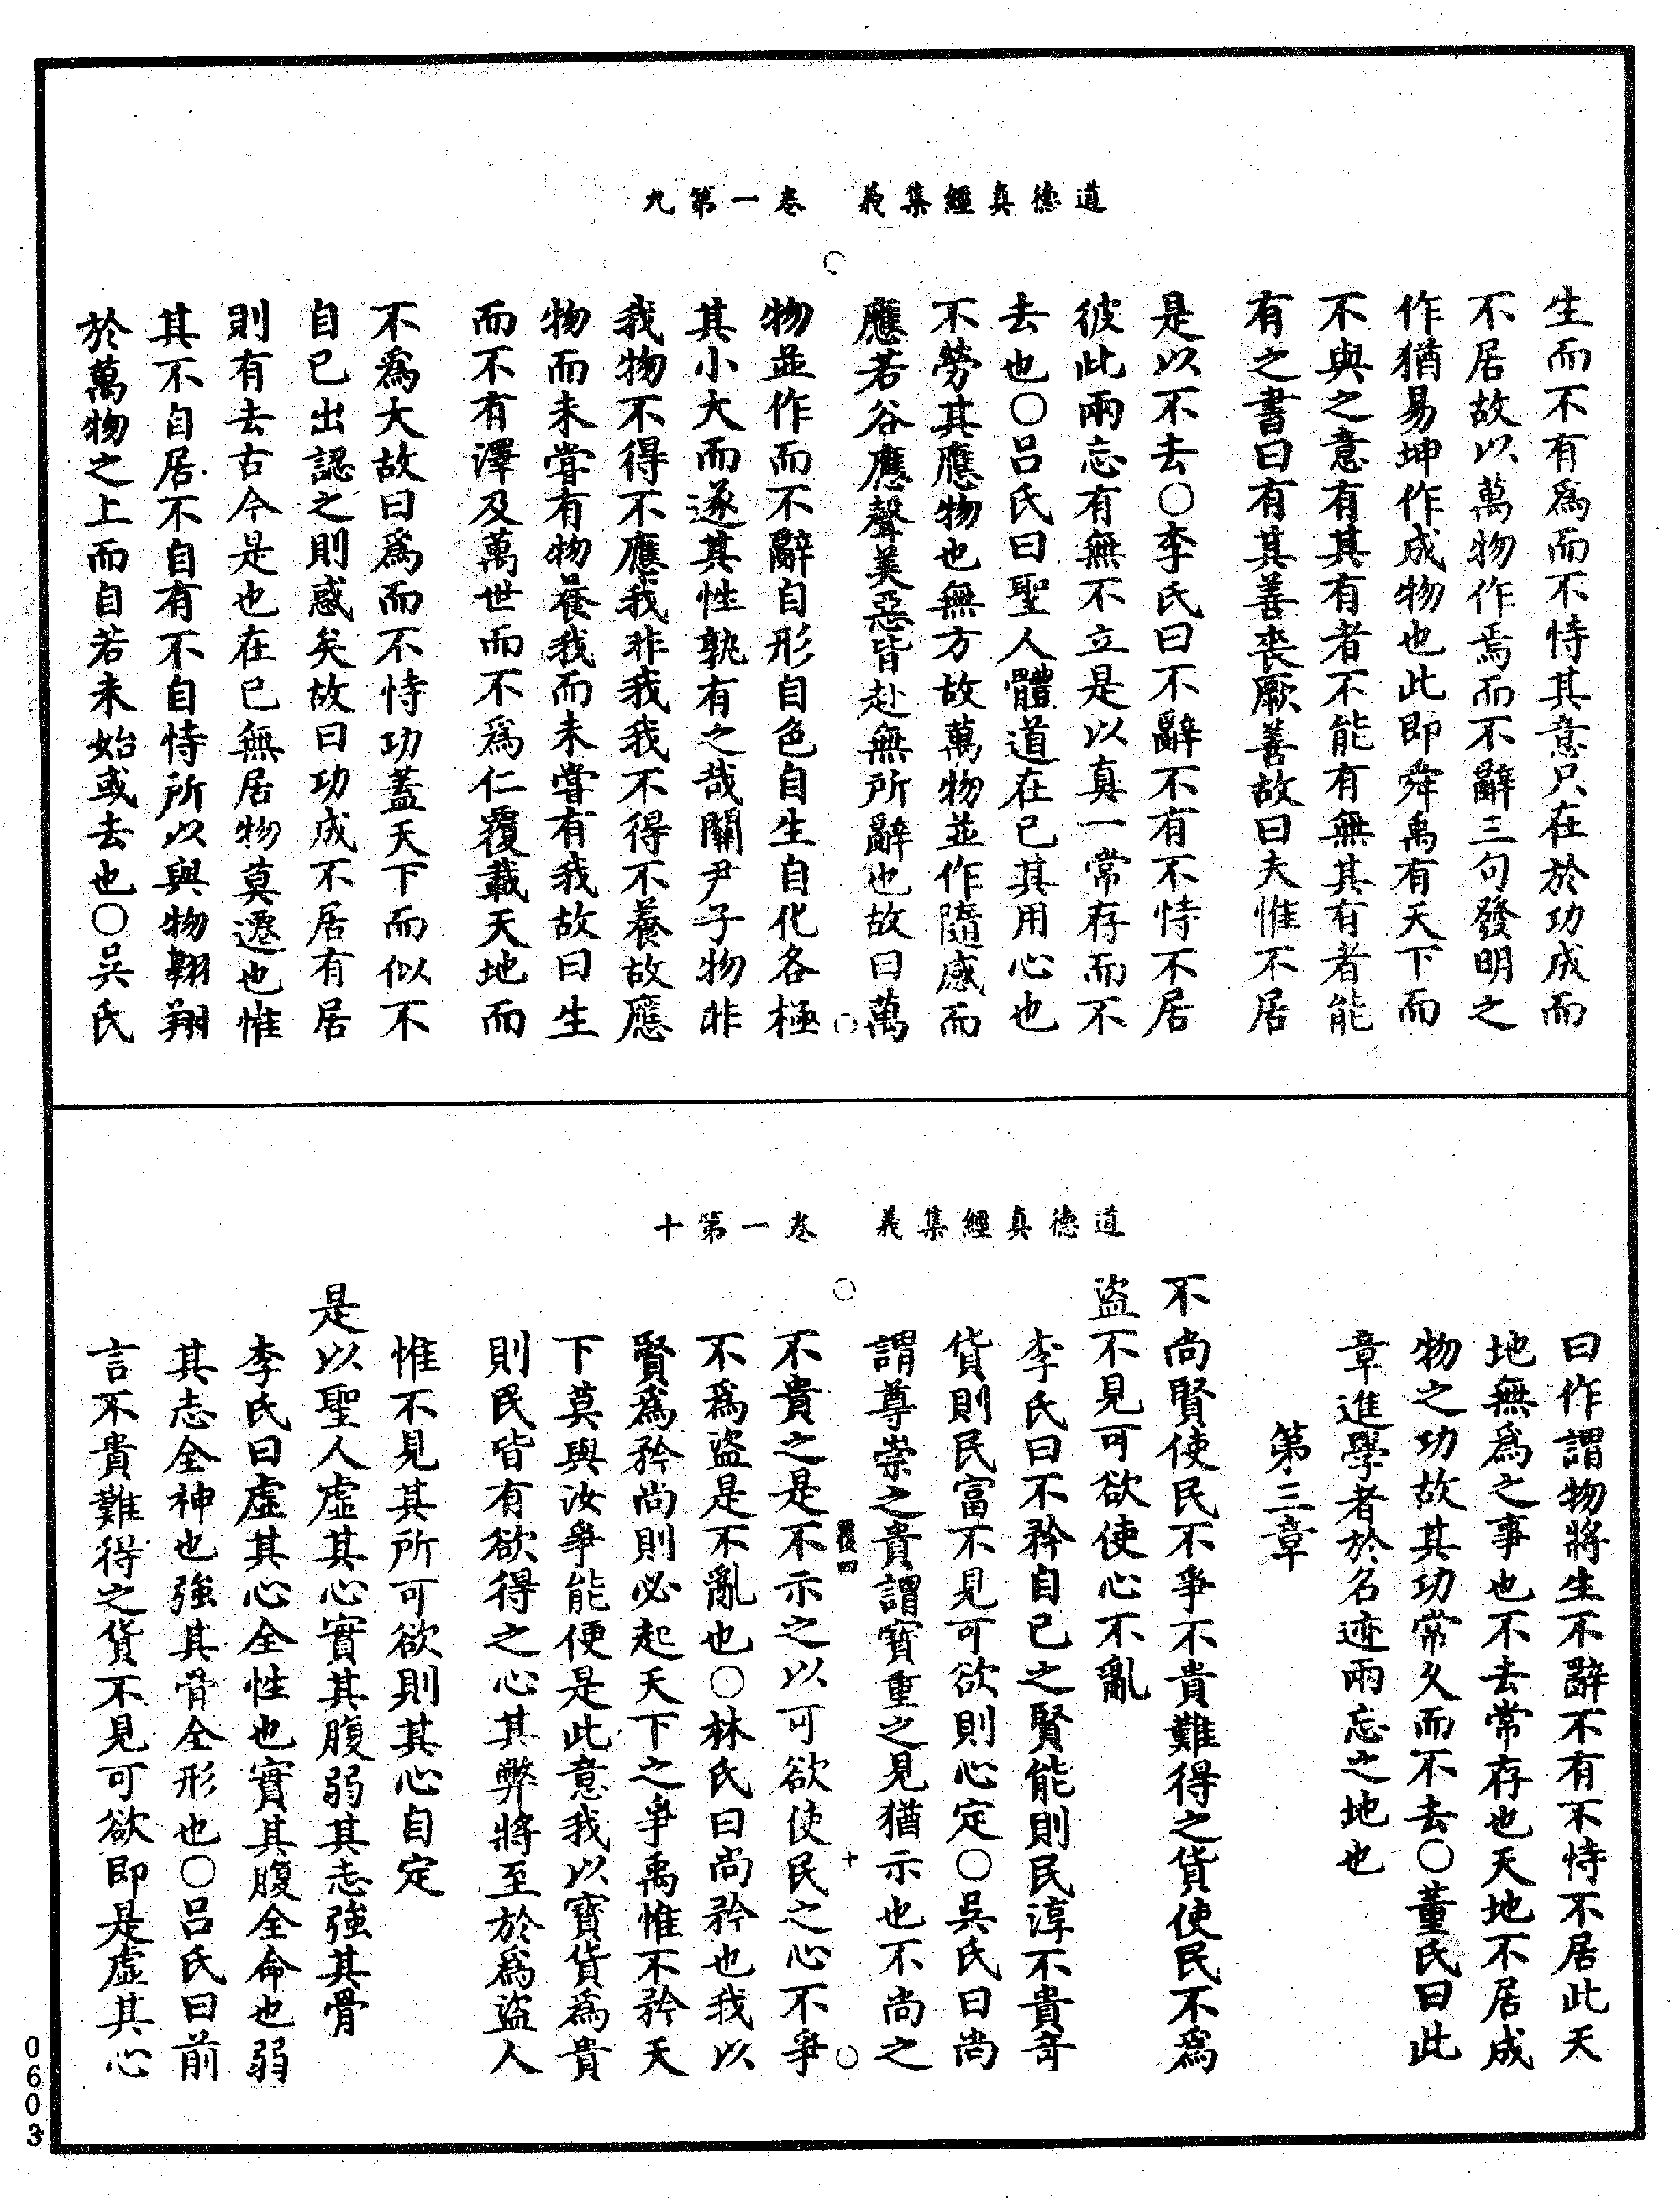 道德真經集義　卷一第九
生而不有爲而不恃其意只在於功成而
不居故以萬物作焉而不辭三句發明之
作猶易坤作成物也此即舜禹有天下而
不與之意有其有者不能有無其有者能
有之書曰有其善喪厥善故曰夫惟不居
是以不去○李氏曰不辭不有不恃不居
彼此兩忘有無不立是以真一常存而不
去也○呂氏曰聖人體道在己其用心也
不勞其應物也無方故萬物並作隨感而
應若谷應聲美惡皆赴無所辭也故曰萬
物並作而不辭自形自色自生自化各極
其小大而遂其性孰有之哉關尹子物非
我物不得不應我非我我不得不養故應
物而未嘗有物養我而未嘗有我故曰生
而不有澤及萬世而不爲仁覆載天地而
不爲大故曰爲而不恃功蓋天下而似不
自己出認之則惑矣故曰功成不居有居
則有去古今是也在己無居物莫遷也惟
其不自居不自有不自恃所以與物翱翔
於萬物之上而自若未始或去也○吳氏
道德真經集義　卷一第十
曰作謂物將生不辭不有不恃不居此天
地無爲之事也不去常存也天地不居成
物之功故其功常久而不去○董氏曰此
章進學者於名迹兩忘之地也
第三章
不尚賢使民不爭不貴難得之貨使民不爲
盜不見可欲使心不亂
李氏曰不矜自己之賢能則民淳不貴奇
貨則民富不見可欲則心定○吳氏曰尚
謂尊崇之貴謂寶重之見猶示也不尚之
十
不貴之是不示之以可欲使民之心不爭
不爲盜是不亂也○林氏曰尚矜也我以
賢爲矜尚則必起天下之爭禹惟不矜天
下莫與汝爭能便是此意我以寶貨爲貴
則民皆有欲得之心其弊將至於爲盜人
惟不見其所可欲則其心自定
是以聖人虛其心實其腹弱其志強其骨
李氏曰虛其心全性也實其腹全命也弱
其志全神也強其骨全形也○呂氏曰前
言不貴難得之貨不見可欲即是虛其心
0603